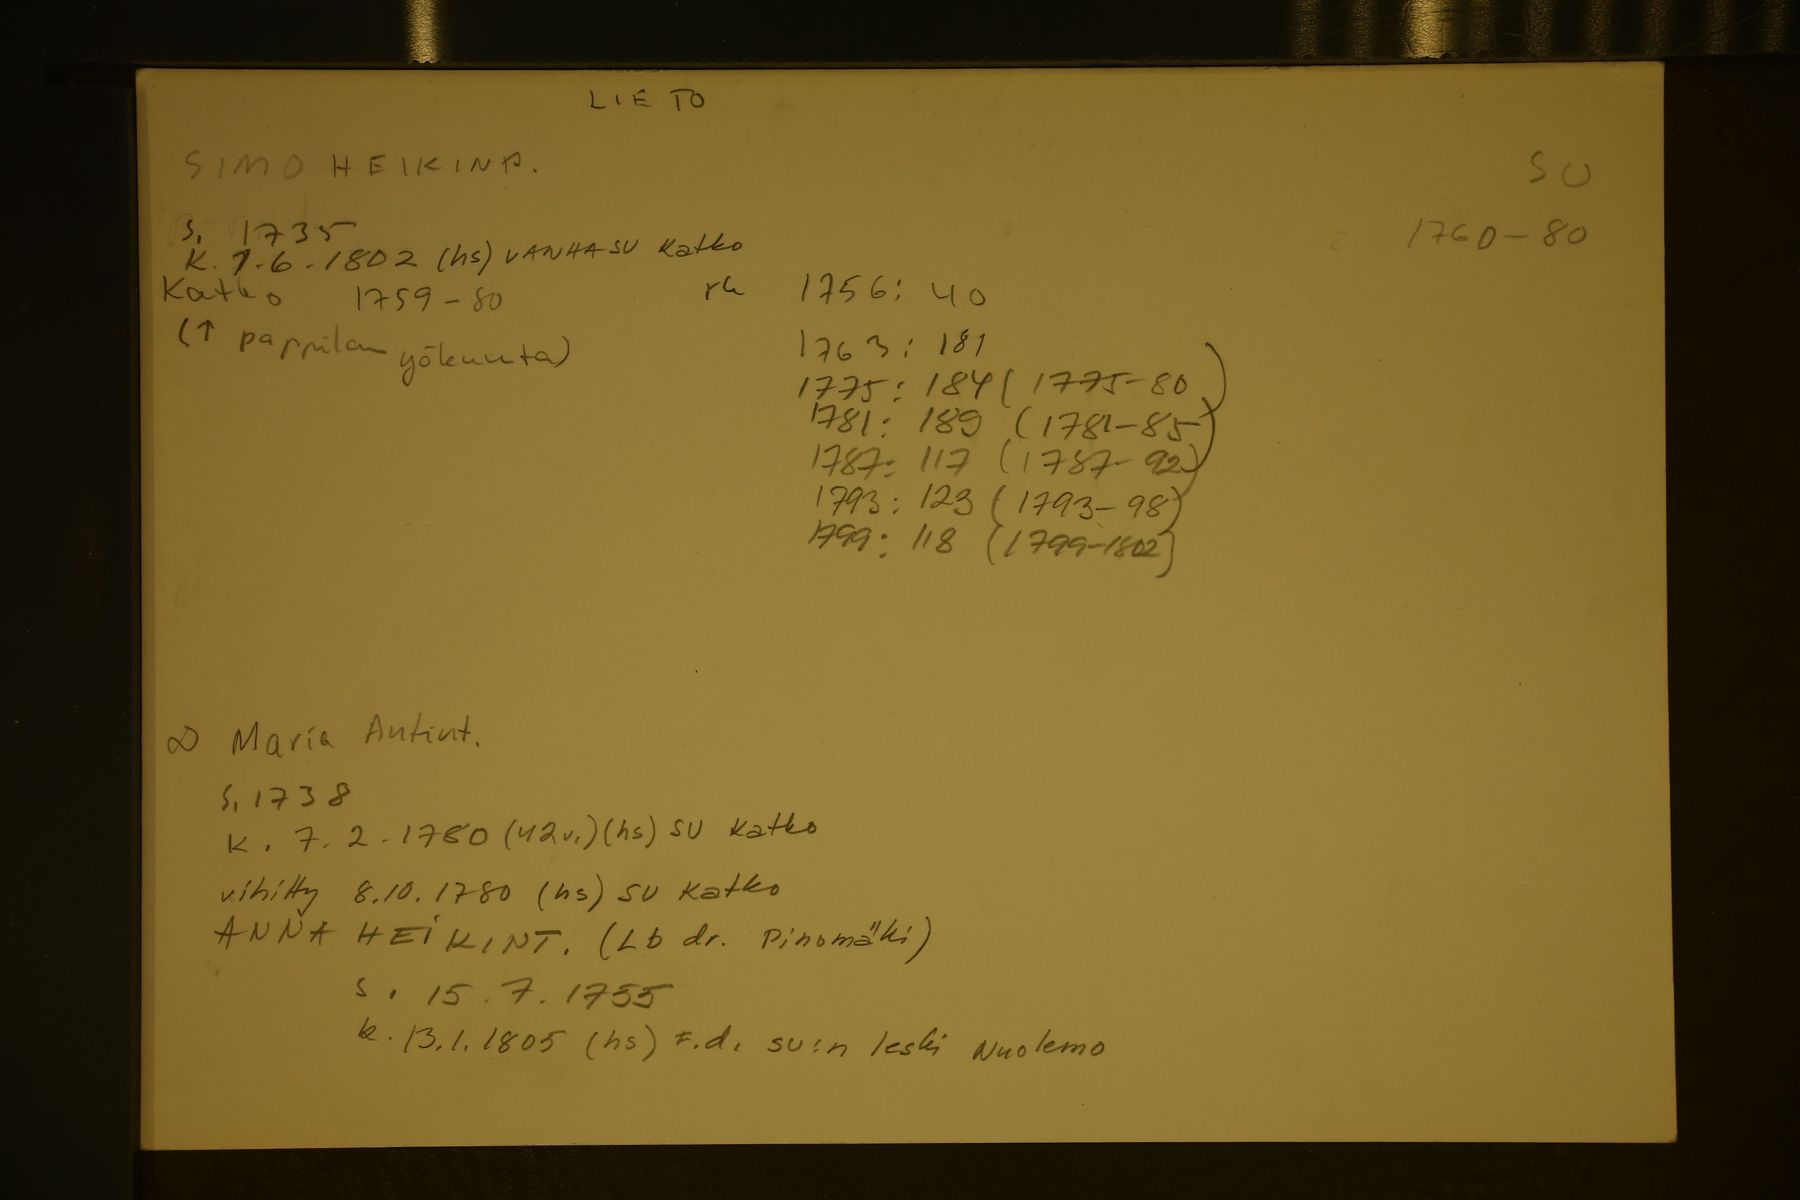 LIETO
SIMO HEIKINP.
SU
s. 1735
1760-80
k. 7.6.1802 (hs) VANHA SU Katko
Katko 1759-80
rk 1756: 40
(↑ pappilan yökunta)
1763: 181
1775: 184 (1775-80)
1781: 189 (1781-85)
1787: 117 (1787-92)
1793: 123 (1793-98)
1799: 118 (1799-1802)
Maria Antint.
s. 1738
k. 7.2.1780 (42v.) (hs) SU Katko
vihitty 8.10.1780 (hs) SU Katko
ANNA HEIKINT. (Lb dr. Pinomäki)
s. 15.7.1755
k. 13.1.1805 (hs) F.d. su:n leski Nuolemo